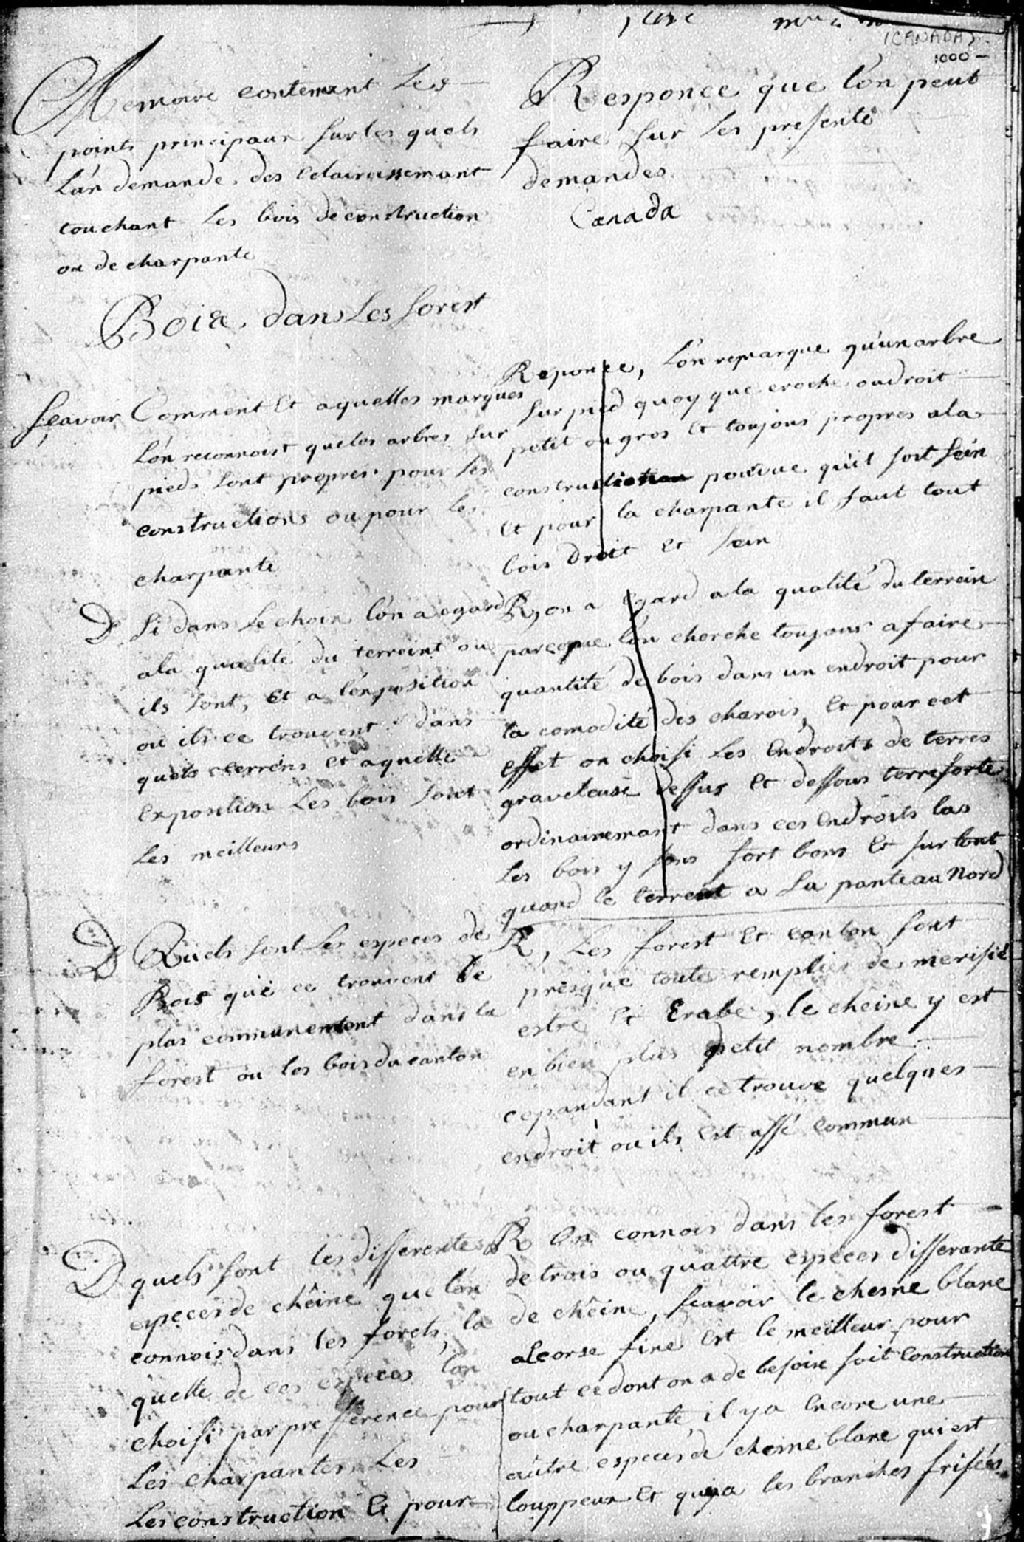 (CANADA)
1000 -
Memoire contenant Les
points principaux sur les quels
L'on demande des Eclaircissemant
touchant Les bois de construction
ou de charpante
Bois dans Les forest
Sçavoir Comment Et aquelles marques
L'on reconnoist que les arbres sur
pieds sont propres pour les
constructions ou pour les
charpante
D Si dans le choix l'on a egard
a la qualité du terreint ou
ils sont, et a l'exposition
ou ils ce trouvent dans
quels terreins et aquelle
Exposition Les bois sont
Les meilleurs
D Quels sont Les especes de
Bois qui ce trouvent le
plus communement dans la
forest ou les bois du canton
D quels sont les differentes
especes de chêine que l'on
connois dans les forets, la
quelle de ces especes l'on
choisi par preference pour
Les charpantes Les
Les construction Et pour
Responce que l'on peut
faire sur Les presente
demandes
Canada
Reponce, L'on remarque qu'un arbre
sur pied quoy que croche ou droit
petit ou gros Et toujours propres a la
construction pourvue qu'il soit sein
Et pour la charpante il faut tout
bois droit Et sein
R, on a Egard a la qualité du terrein
parceque l'on cherche toujours a faire
quantité de bois dans un endroit pour
la comodité des charois, Et pour cet
effet on choisi Les Endroits de terres
graveleuse dessus Et dessous terre forte
ordinairemant dans ces Endroits las
Les bois y sons fort bons Et sur tout
quand le terreint a La pante au Nord
R, Les forest Et canton sont
presque toute remplies de merisié
estre Et Erabe, le cheine y est
en bien plus petit nombre
cepandant il ce trouve quelques
endroit ou ils Est assé commun
R On connois dans les forest
de trois ou quattre especes differante
de chêine, scavoir le chesne blanc
a lecorse fine Est le meilleur pour
tout ce dont on a de besoire soit construction
ou charpante, il y a Encore une
autre especes de chesne blanc qui est
louppeux Et qui a les branches frisées